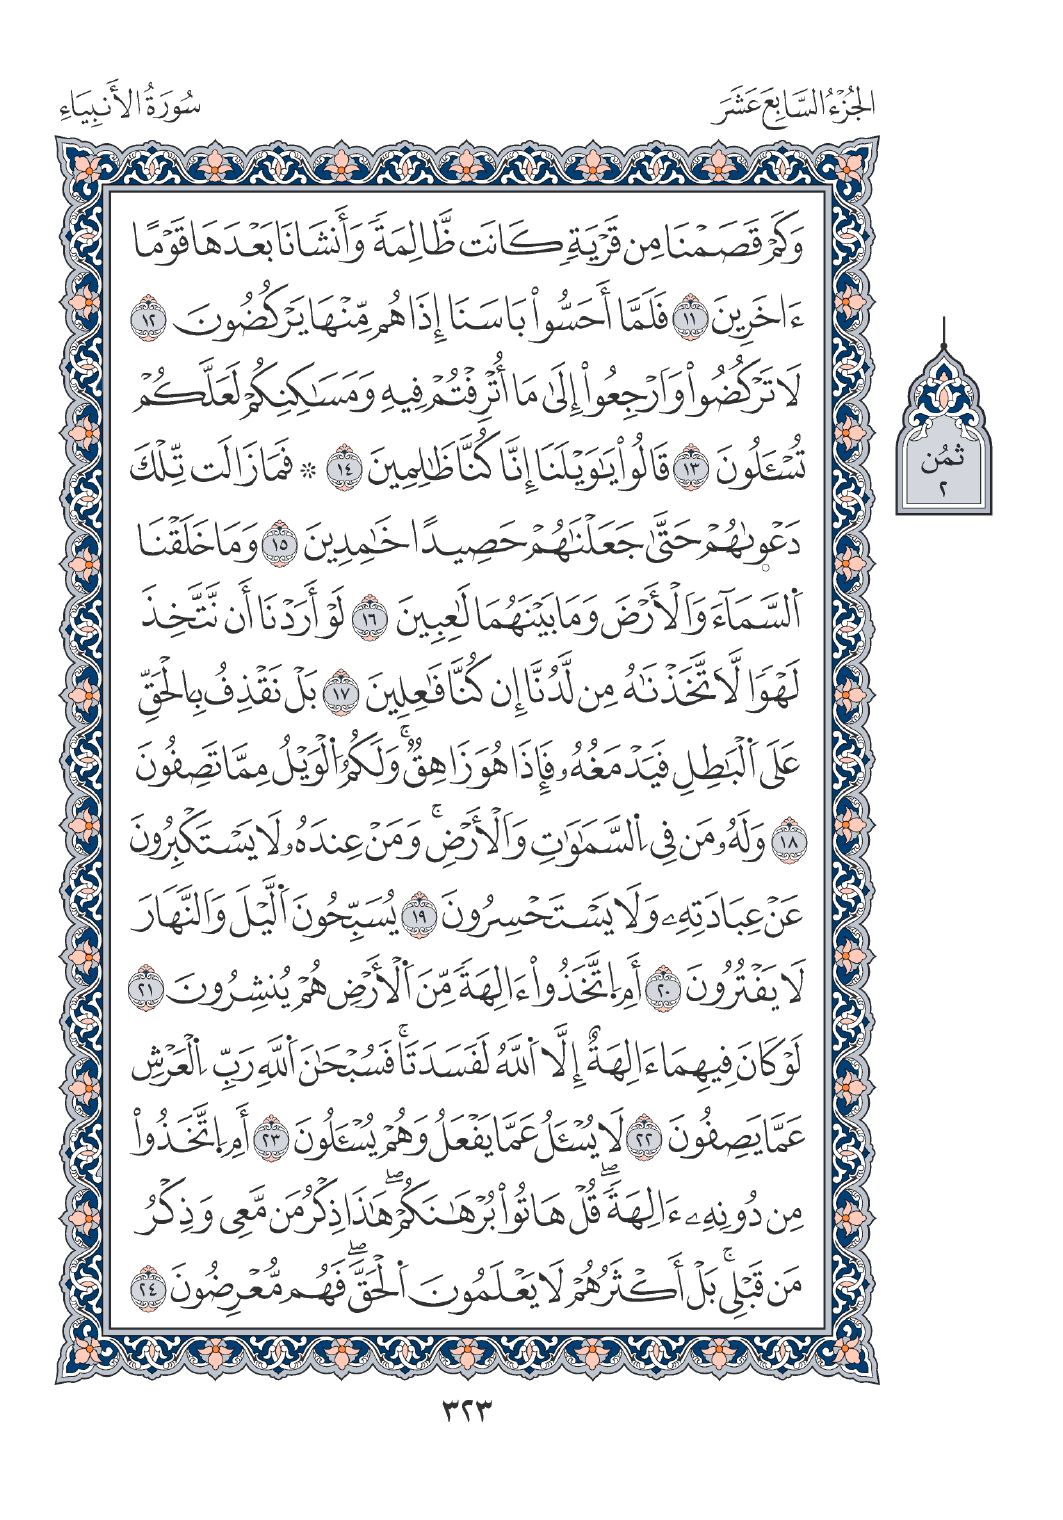 الجُزْءُ السَّابِعَ عَشَرَ
سُورَةُ الأَنبِيَاءِ
وَكَمْ قَصَمْنَا مِن قَرْيَةٖ كَانَت ظَّالِمَةٗ وَأَنشَانَا بَعْدَهَا قَوْمًا
ءَاخَرِينَ ١١ فَلَمَّا أَحَسُّواْ بَاسَنَا إِذَا هُم مِّنْهَا يَرْكُضُونَ ١٢
لَا تَرْكُضُواْ وَارْجِعُواْ إِلَىٰ مَا أُتْرِفْتُمْ فِيهِ وَمَسَٰكِنِكُمْ لَعَلَّكُمْ
تُسْـَٔلُونَ ١٣ قَالُواْ يَٰوَيْلَنَا إِنَّا كُنَّا ظَٰلِمِينَ ١٤ ۞ فَمَا زَالَت تِّلْكَ
دَعْوٜىٰهُمْ حَتَّىٰ جَعَلْنَٰهُمْ حَصِيدًا خَٰمِدِينَ ١٥ وَمَا خَلَقْنَا
اَ۬لسَّمَآءَ وَالْأَرْضَ وَمَا بَيْنَهُمَا لَٰعِبِينَ ١٦ لَوْ أَرَدْنَا أَن نَّتَّخِذَ
لَهْوٗا لَّاتَّخَذْنَٰهُ مِن لَّدُنَّا إِن كُنَّا فَٰعِلِينَ ١٧ بَلْ نَقْذِفُ بِالْحَقِّ
عَلَى اَ۬لْبَٰطِلِ فَيَدْمَغُهُۥ فَإِذَا هُوَ زَاهِقٞۚ وَلَكُمُ اُ۬لْوَيْلُ مِمَّا تَصِفُونَ
١٨ وَلَهُۥ مَن فِي اِ۬لسَّمَٰوَٰتِ وَالْأَرْضِۚ وَمَنْ عِندَهُۥ لَا يَسْتَكْبِرُونَ
عَنْ عِبَادَتِهِۦ وَلَا يَسْتَحْسِرُونَ ١٩ يُسَبِّحُونَ اَ۬لَّيْلَ وَالنَّهَارَ
لَا يَفْتُرُونَ ٢٠ أَمِ اِ۪تَّخَذُواْ ءَالِهَةٗ مِّنَ اَ۬لْأَرْضِ هُمْ يُنشِرُونَ ٢١
لَوْ كَانَ فِيهِمَا ءَالِهَةٌ إِلَّا اَ۬للَّهُ لَفَسَدَتَاۚ فَسُبْحَٰنَ اَ۬للَّهِ رَبِّ اِ۬لْعَرْشِ
عَمَّا يَصِفُونَ ٢٢ لَا يُسْـَٔلُ عَمَّا يَفْعَلُ وَهُمْ يُسْـَٔلُونَ ٢٣ أَمِ اِ۪تَّخَذُواْ
مِن دُونِهِۦ ءَالِهَةٗۖ قُلْ هَاتُواْ بُرْهَٰنَكُمْۖ هَٰذَا ذِكْرُ مَن مَّعِي وَذِكْرُ
مَن قَبْلِيۚ بَلْ أَكْثَرُهُمْ لَا يَعْلَمُونَ اَ۬لْحَقَّۖ فَهُم مُّعْرِضُونَ ٢٤
ثمُن
٢
٣٢٣